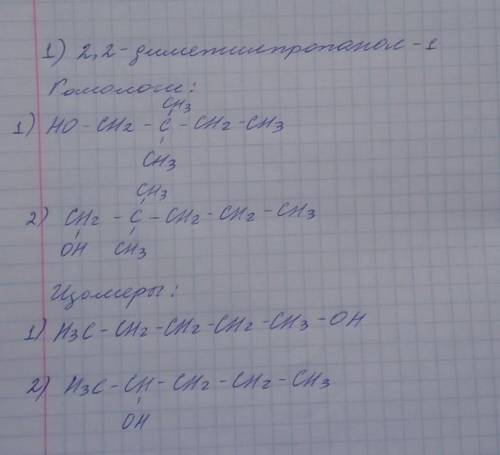 1) 2,2-диметилпропанол-1
Гомологи:
CH3
1) HO - CH2 - C - CH2 - CH3
CH3
CH3
2) CH2 - C - CH2 - CH2 - CH3
OH CH3
Изомеры:
1) H3C - CH2 - CH2 - CH2 - CH3 - OH
2) H3C - CH - CH2 - CH2 - CH3
OH